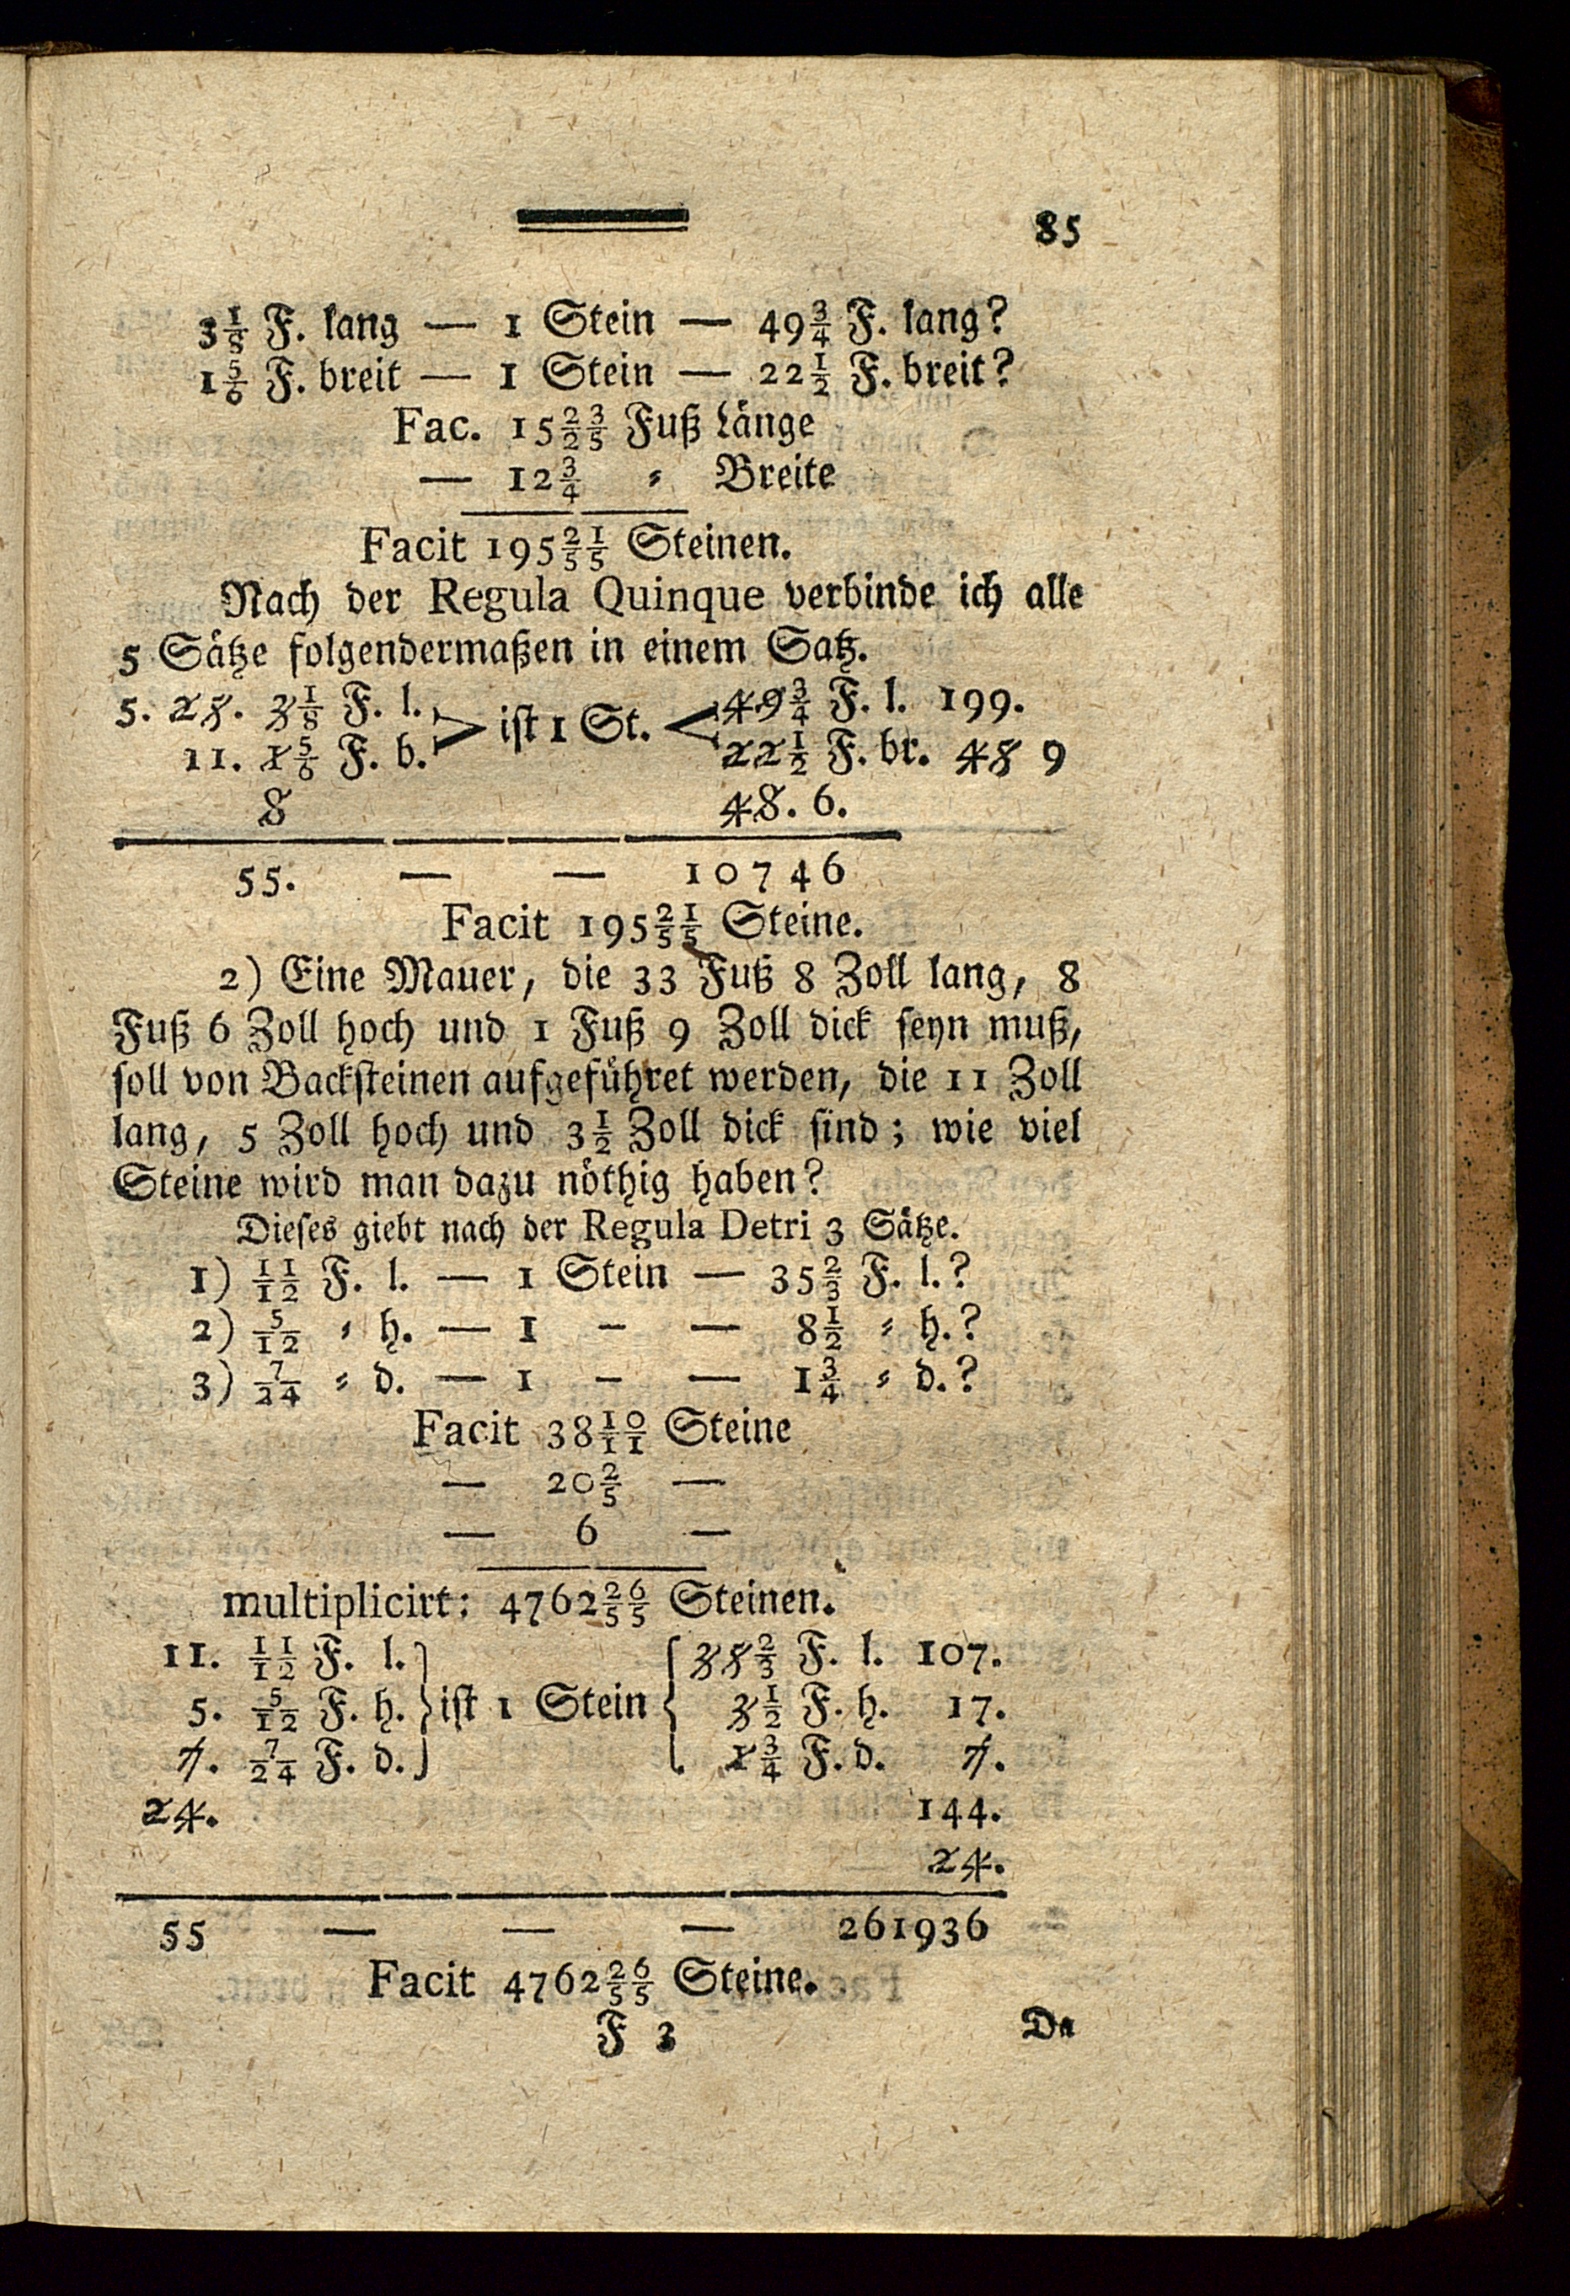 85
3 1/8 F. lang — 1 Stein — 49 3/4 F. lang?
1 5/6 F. breit — 1 Stein — 22 1/2 F. breit?
Fac. 15 23/25 Fuß Länge
— 12 3/4 ⸗ Breite
Facit 195 21/55 Steinen.
Nach der Regula Quinque verbinde ich alle
5 Sätze folgendermaßen in einem Satz.
5. 25. 3 1/8 F. l. > ist 1 St. < 49 3/4 F. l. 199.
11. 1 5/6 F. b. 22 1/2 F. br. 45 9
8 48. 6.
55. — — 10746
Facit 195 21/55 Steine.
2) Eine Mauer, die 33 Fuß 8 Zoll lang, 8
Fuß 6 Zoll hoch und 1 Fuß 9 Zoll dick seyn muß,
soll von Backsteinen aufgeführet werden, die 11 Zoll
lang, 5 Zoll hoch und 3 1/2 Zoll dick sind; wie viel
Steine wird man dazu nöthig haben?
Dieses giebt nach der Regula Detri 3 Sätze.
1) 11/12 F. l. — 1 Stein — 35 2/3 F. l.?
2) 5/12 ⸗ h. — 1 - — 8 1/2 ⸗ h.?
3) 7/24 ⸗ d. — 1 - — 1 3/4 ⸗ d.?
Facit 38 10/11 Steine
— 20 2/5 —
— 6 —
multiplicirt: 4762 26/55 Steinen.
11. 11/12 F. l. } ist 1 Stein { 35 2/3 F. l. 107.
5. 5/12 F. h. 3 1/2 F. h. 17.
7. 7/24 F. d. 1 3/4 F. d. 7.
24. 144.
24.
55 — — — 261936
Facit 4762 26/55 Steine.
F 3 Da